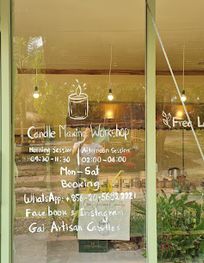 Candle Making Workshop
Morning Session Afternoon Session
09:30 - 11:30 02:00 - 04:00
Mon - Sat
Booking
WhatsApp: +856-20-5682 2221
Facebook & Instagram
Gai Artisan Candles
Free